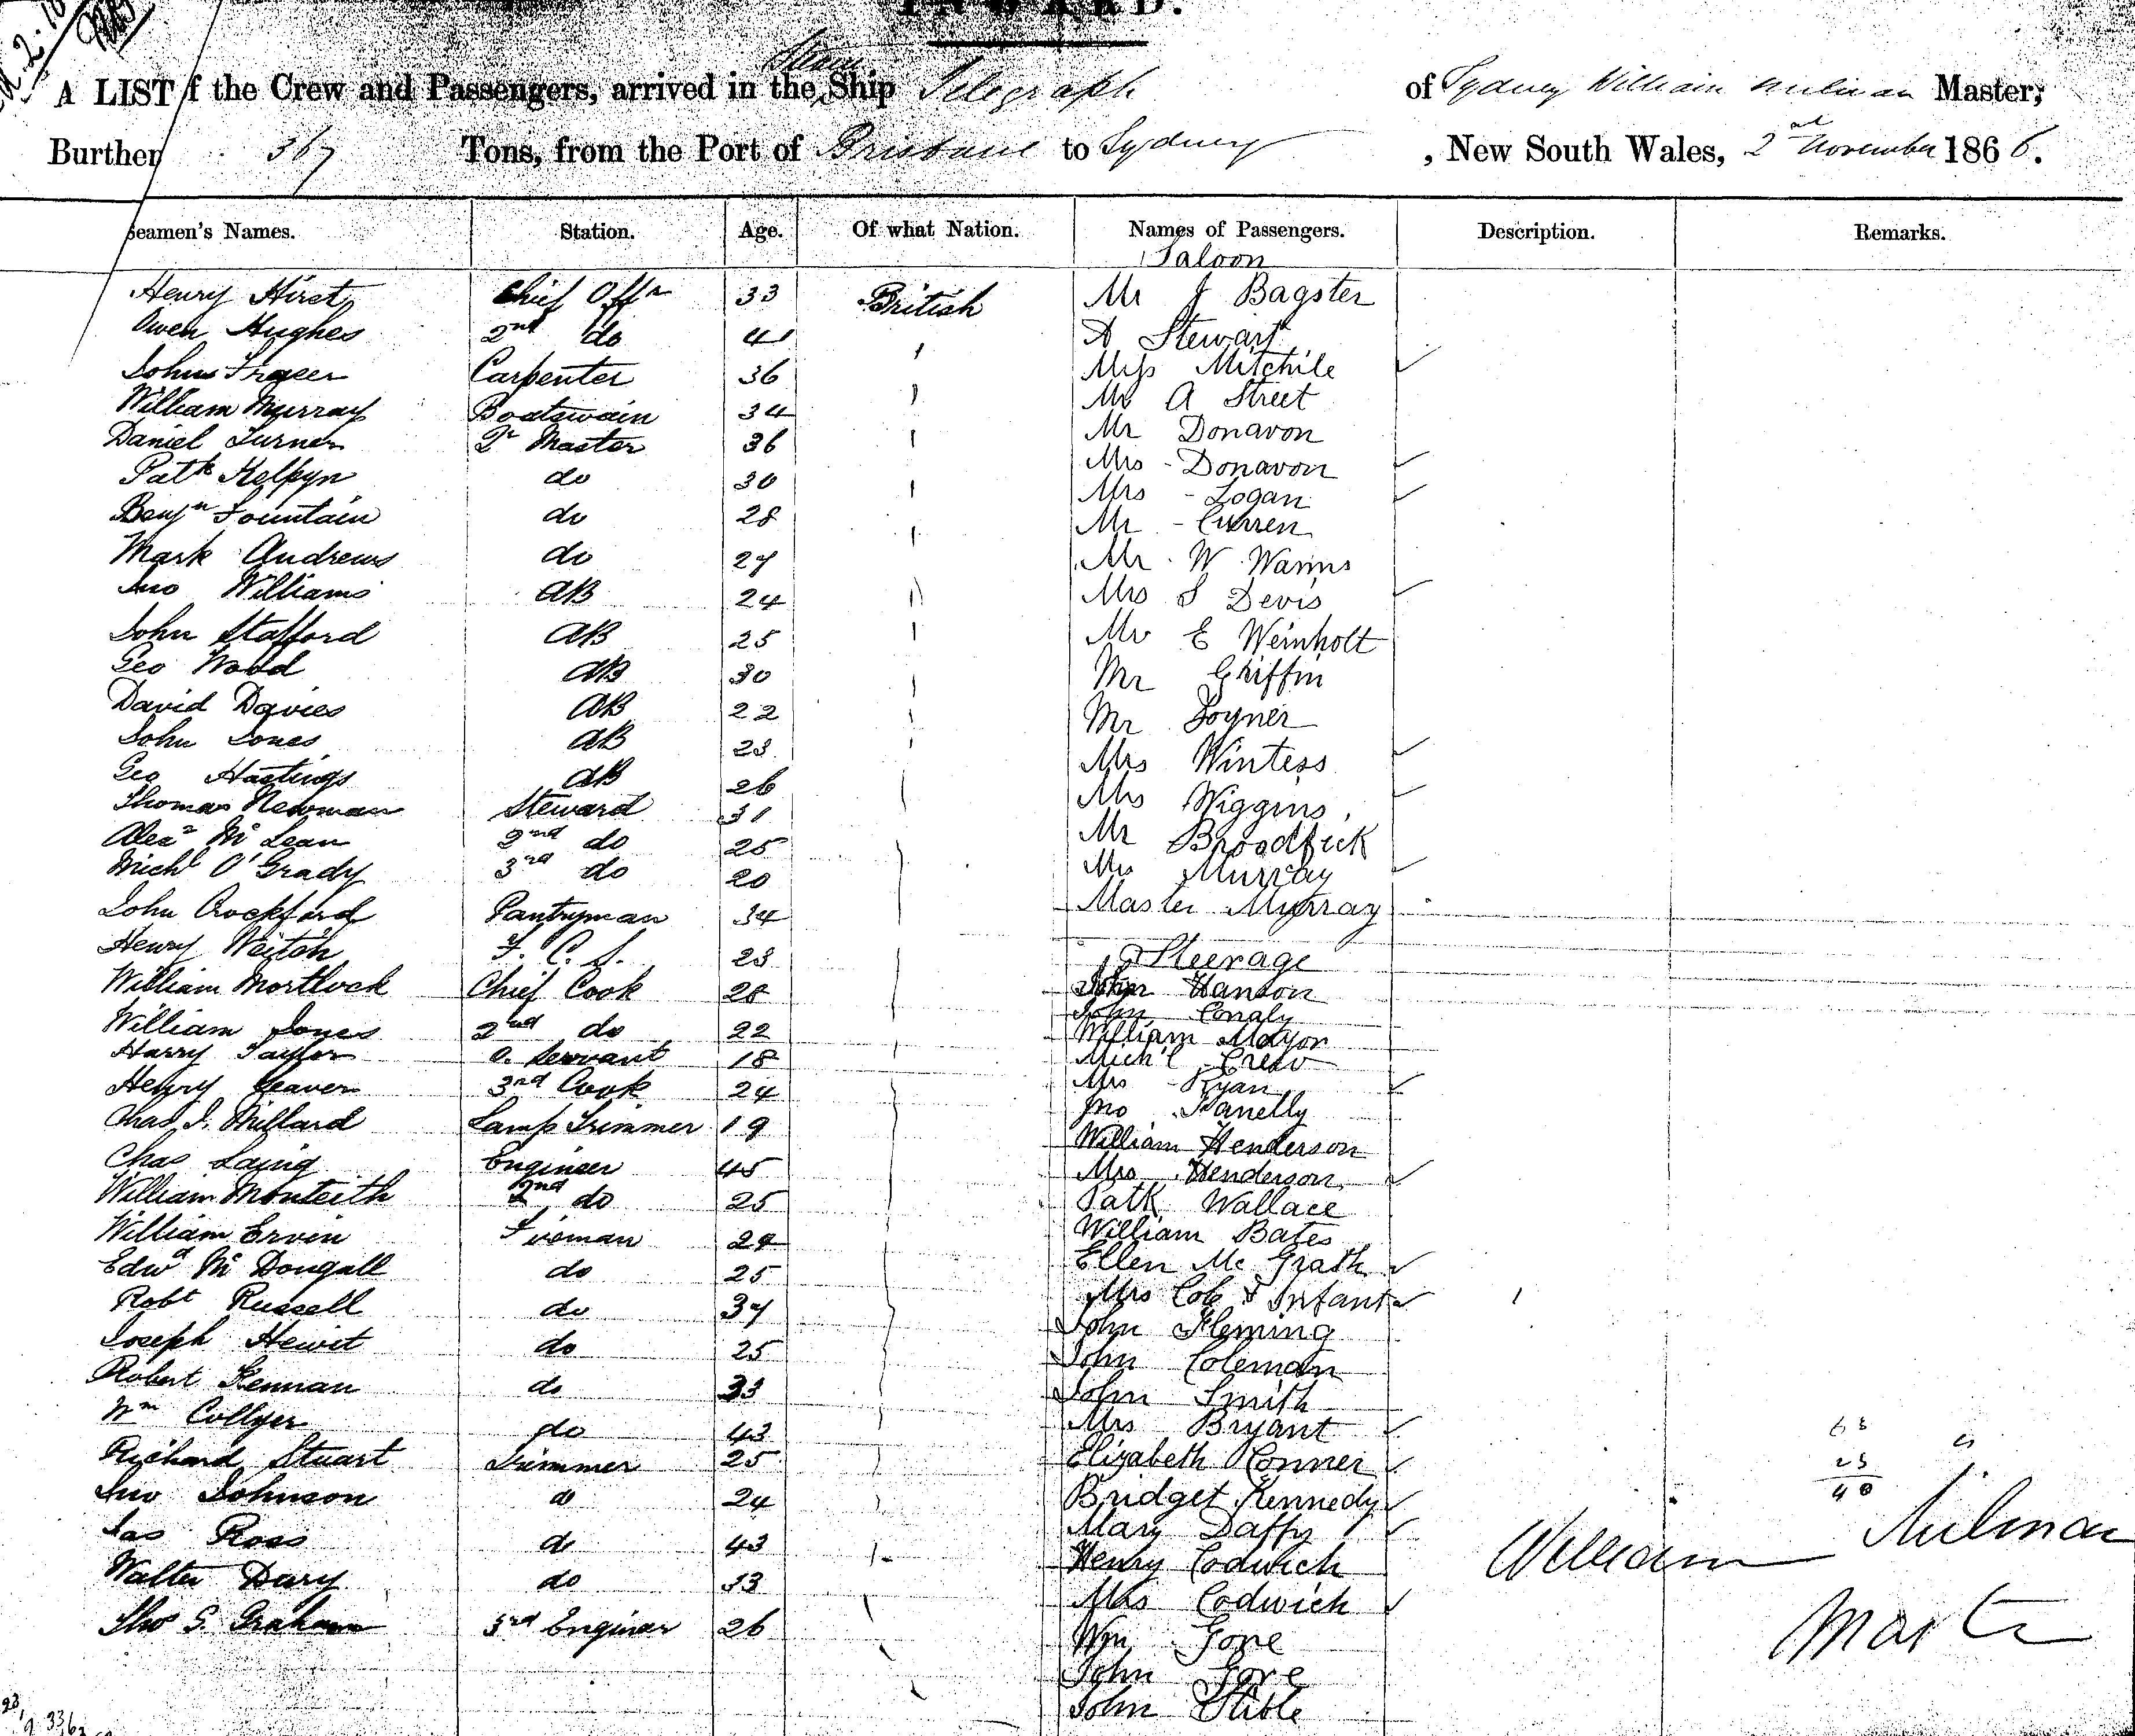 INWARD.
A LIST of the Crew and Passengers, arrived in the Steam Ship Telegraph of Sydney William Milman Master,
Burthen 367 Tons, from the Port of Brisbane to Sydney, New South Wales, 2nd November 1866.
Seamen's Names. Station. Age. Of what Nation. Names of Passengers. Description. Remarks.
Saloon
Henry Hirst Chief Offr 33 British Mr J Bagster
Owen Hughes 2nd do 41 A Stewart
John Fraser Carpenter 36 Miss Mitchile
William Murray Boatswain 34 Mr A Street
Daniel Turner Qr Master 36 Mr Donavon
Patk do 30 Mrs Donavon
Benjn Fountain do 28 Mrs Logan
Mark Andrews do 27 Mr Curren
Jno Williams AB 24 Mr W
John Stafford AB 25 Mrs S Devis
Geo Wood AB 30 Mr E Weinholt
David Davies AB 22 Mr Griffin
John Jones AB 23 Mr Joyner
Geo Hastings AB 26 Mrs Wintess
Thomas Newman Steward 31 Mrs Wiggins
Alexr McLean 2nd do 25 Mr
Michl O'Grady 3rd do 20 Mrs Murray
John Crockford Pantryman 34 Master Murray
Henry Veitch F. C. S. 23 Steerage
William Mortlock Chief Cook 28 John Hanson
John Conaly
William Jones 2nd do 22 William Mayor
Harry Taylor O. Servant 18 Mich'l Crew
Henry Beaver 3rd Cook 24 Mrs Ryan
Chas J. Millard Lamp Trimmer 19 Jno Hanelly
William Henderson
Chas Laing Engineer 45 Mrs Henderson
William Monteith 2nd do 25 Patk Wallace
William Ervin Fireman 29 William Bates
Edwd McDougall do 25 Ellen Mc Grath
Robt Russell do 37 Mrs Cole & Infant
John Fleming
Joseph Hewit do 25 John Coleman
Robert Kennan do 33 John Smith
Wm Collyer do 43 Mrs Bryant
Richard Stuart Trimmer 25 Elizabeth Conner
Jno Johnson do 24 Bridget Kennedy
Jas Ross do 43 Mary Daffy
Walter Davy do 33 Henry Codwich
Mrs Codwich
Thos G. Graham 3rd Engineer 26 Wm Gore
John Gore
John Stible
63
23
40
William Milman
Master